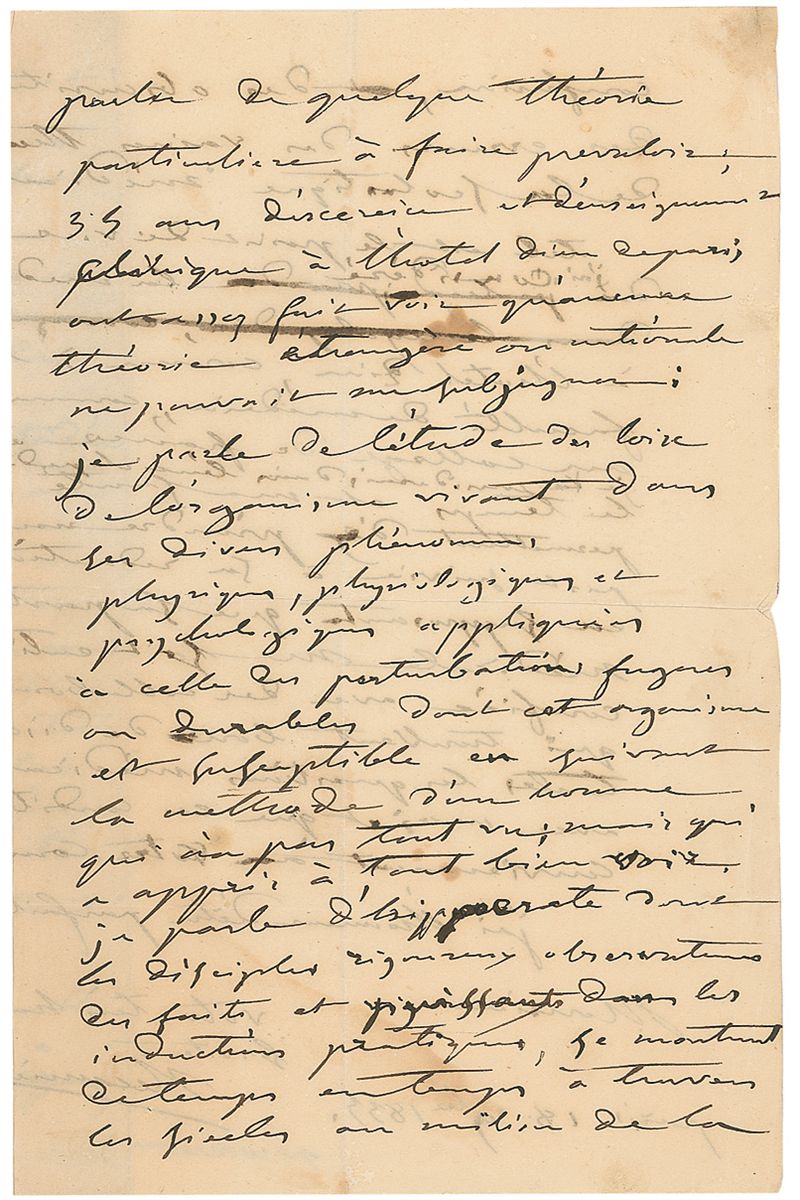 parler de quelque théorie
particuliere à faire prevaloir;
35 ans d'éxcercice et d'enseignement
clinique à l'hotel dieu de paris
ont assez fait voir qu'aucune
théorie étrangère ou nationale
ne pouvait me subjuguer;
je parle de l'étude des loix
de l'organisme vivant dans
ses divers phénomenes
physiques, physiologiques et
psychologiques appliquées
à celle des perturbations fugaces
ou durables dont cet organisme
est susceptible en suivant
la méthode d'un homme
qui n'a pas tout vu; mais qui
a appris à tout bien voir.
je parle d'hippocrate dont
les disciples rigoureux observateurs
des faits et dans les
inductions pratiques, se montrent
de temps en temps à travers
les siecles au milieu de la